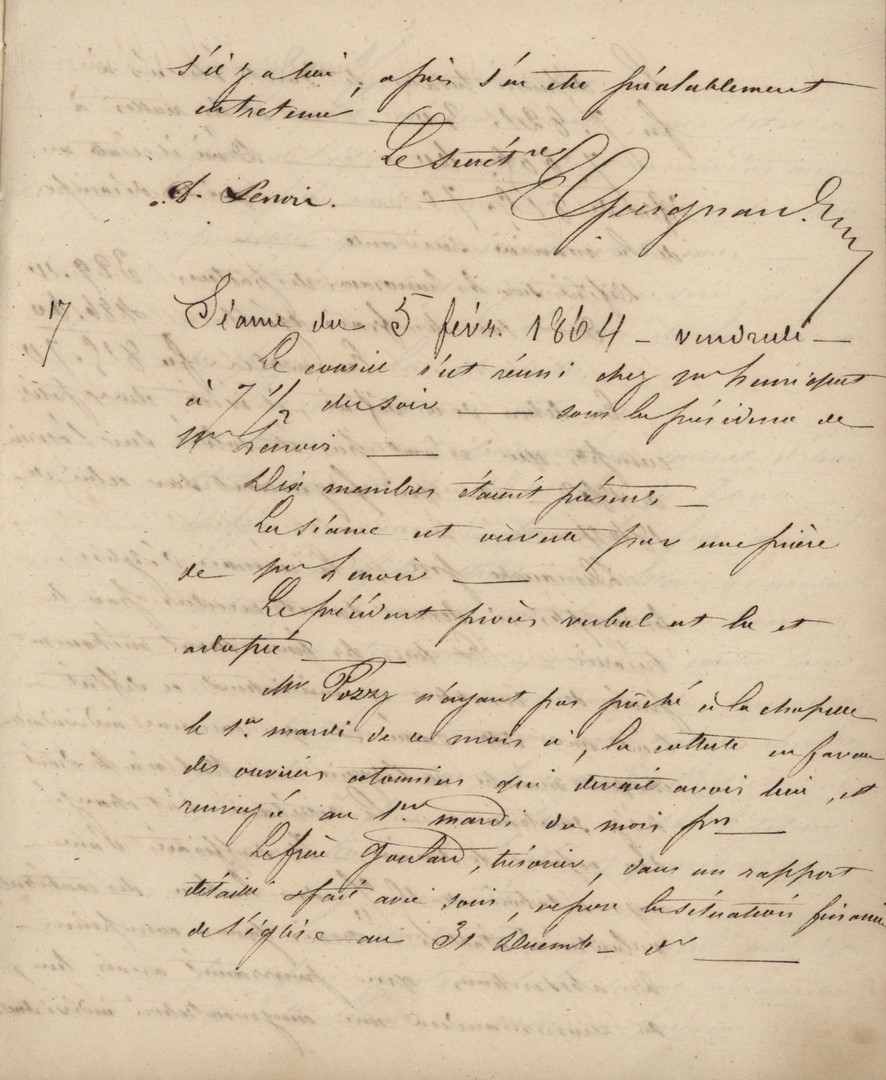 s'il y a lieu, après s'en être préalablement
entretenu —
Le Secrétre
D. Lenoir.
E Guignard
17
Séance du 5 févr. 1864 — vendredi —
Le conseil s'est réuni chez mr
à 7 1/2 du soir — sous la présidence de
Mr Lenoir —
Dix membres étaient présents —
La séance est ouverte par une prière
de mr Lenoir —
Le précédent procès verbal est lu et
adopté —
Mr Pozzy n'ayant pas prêché à la chapelle
le 1er mardi de ce mois ci, la collecte en faveur
des ouvriers cotonniers qui devait avoir lieu, est
renvoyée au 1er mardi du mois pn —
Le frère Goulard, trésorier, dans un rapport
détaillé & fait avec soin, expose la situation financ
de l'église au 31 Décemb — dr —